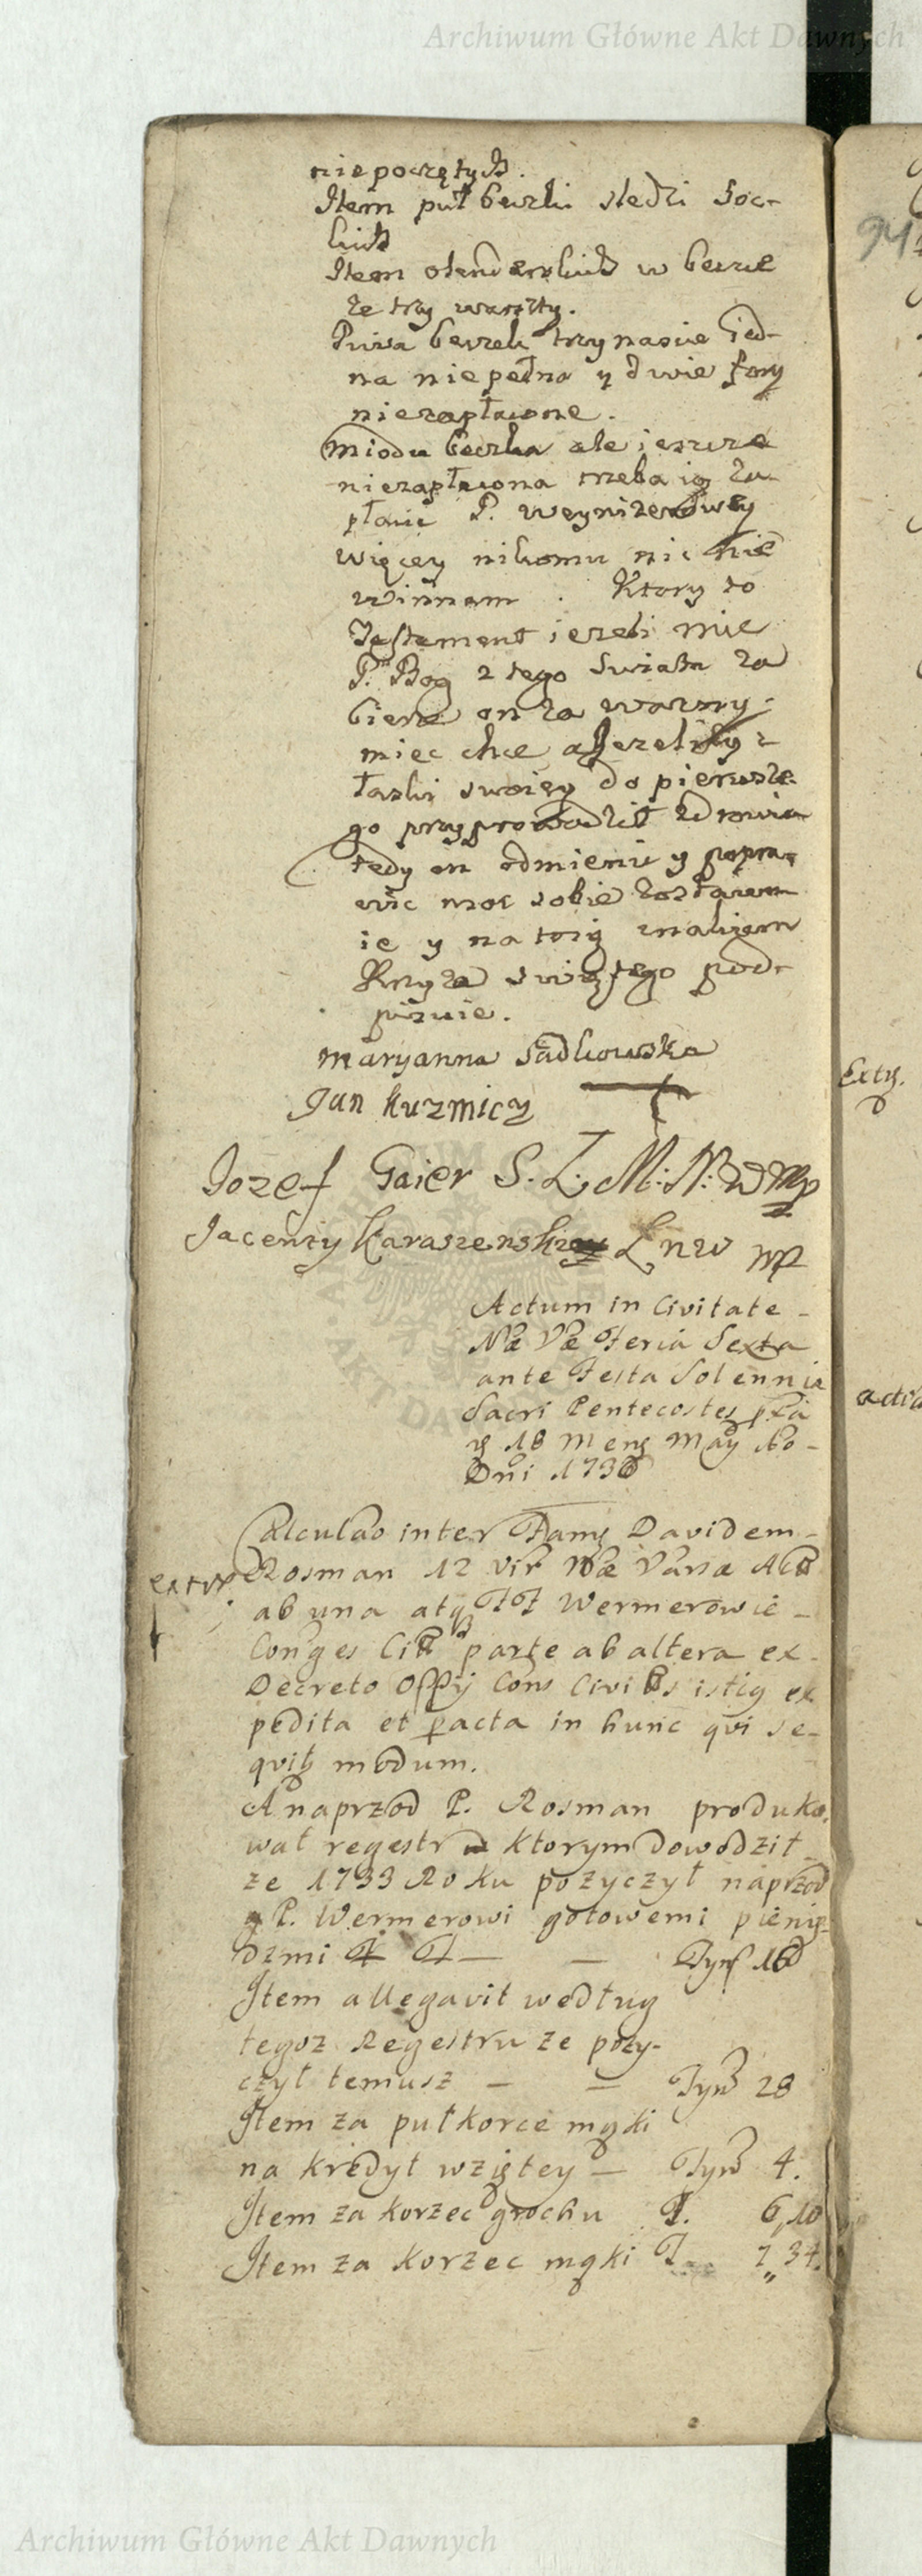 Archiwum Główne Akt Dawnych
niepoczętych.
Item puł beczki sledzi soc-
kich
Item olenderskich w becze
ze trzy warszty.
Piwa beczek trzynascie ied-
na niepełna y dwie fasy
niezapłacone.
Miodu beczka ale ieszcze
niezapłacona trzeba ią za-
płacic P.
więcey nikomu nic nie
winnam. Ktory to
Testament iezeli mie
P. Bog z tego swiata za
bierze on za wazny
miec chce a Jezeliby z
łaski swoiey do pierwsze-
go przyprowadził zdrowia
tedy on odmienic y popra-
wic moc sobie zostawu-
ie y na to się znakiem
Krzyza swiętego pod-
pisuie.
Maryanna Sadkowska
Jan Kuzmicz
Jozef Gaier S. L. M. N. W mp
Jacenty Karaszenski L nw mp
Actum in Civitate
Næ Væ Feria Sexta
ante Festa Solennia
Sacri Pentecostes
18 Mens May Ao
Dni 1736
Calculao inter Fams Davidem
Rosman 12 vir Næ Varsæ
ab una atq Wermerowie
Conges parte ab altera ex
Decreto Offy Cons
pedita et pacta in hunc qui se-
quit modum.
A naprzod P. Rosman produko
wał regestr w ktorym dowodził
ze 1733 Roku pozyczył naprzod
P. Wermerowi gotowemi pienię
dzmi — — Tynf 16
Item allegavit według
tegoz Regestru ze pozy-
czył temusz — — Tynf 28
Item za pułkorce mąki
na kredyt wziętey — Tynf 4.
Item za korzec grochu T. 6,10
Item za korzec mąki T. 7,,34.
Exty.
94
Archiwum Główne Akt Dawnych